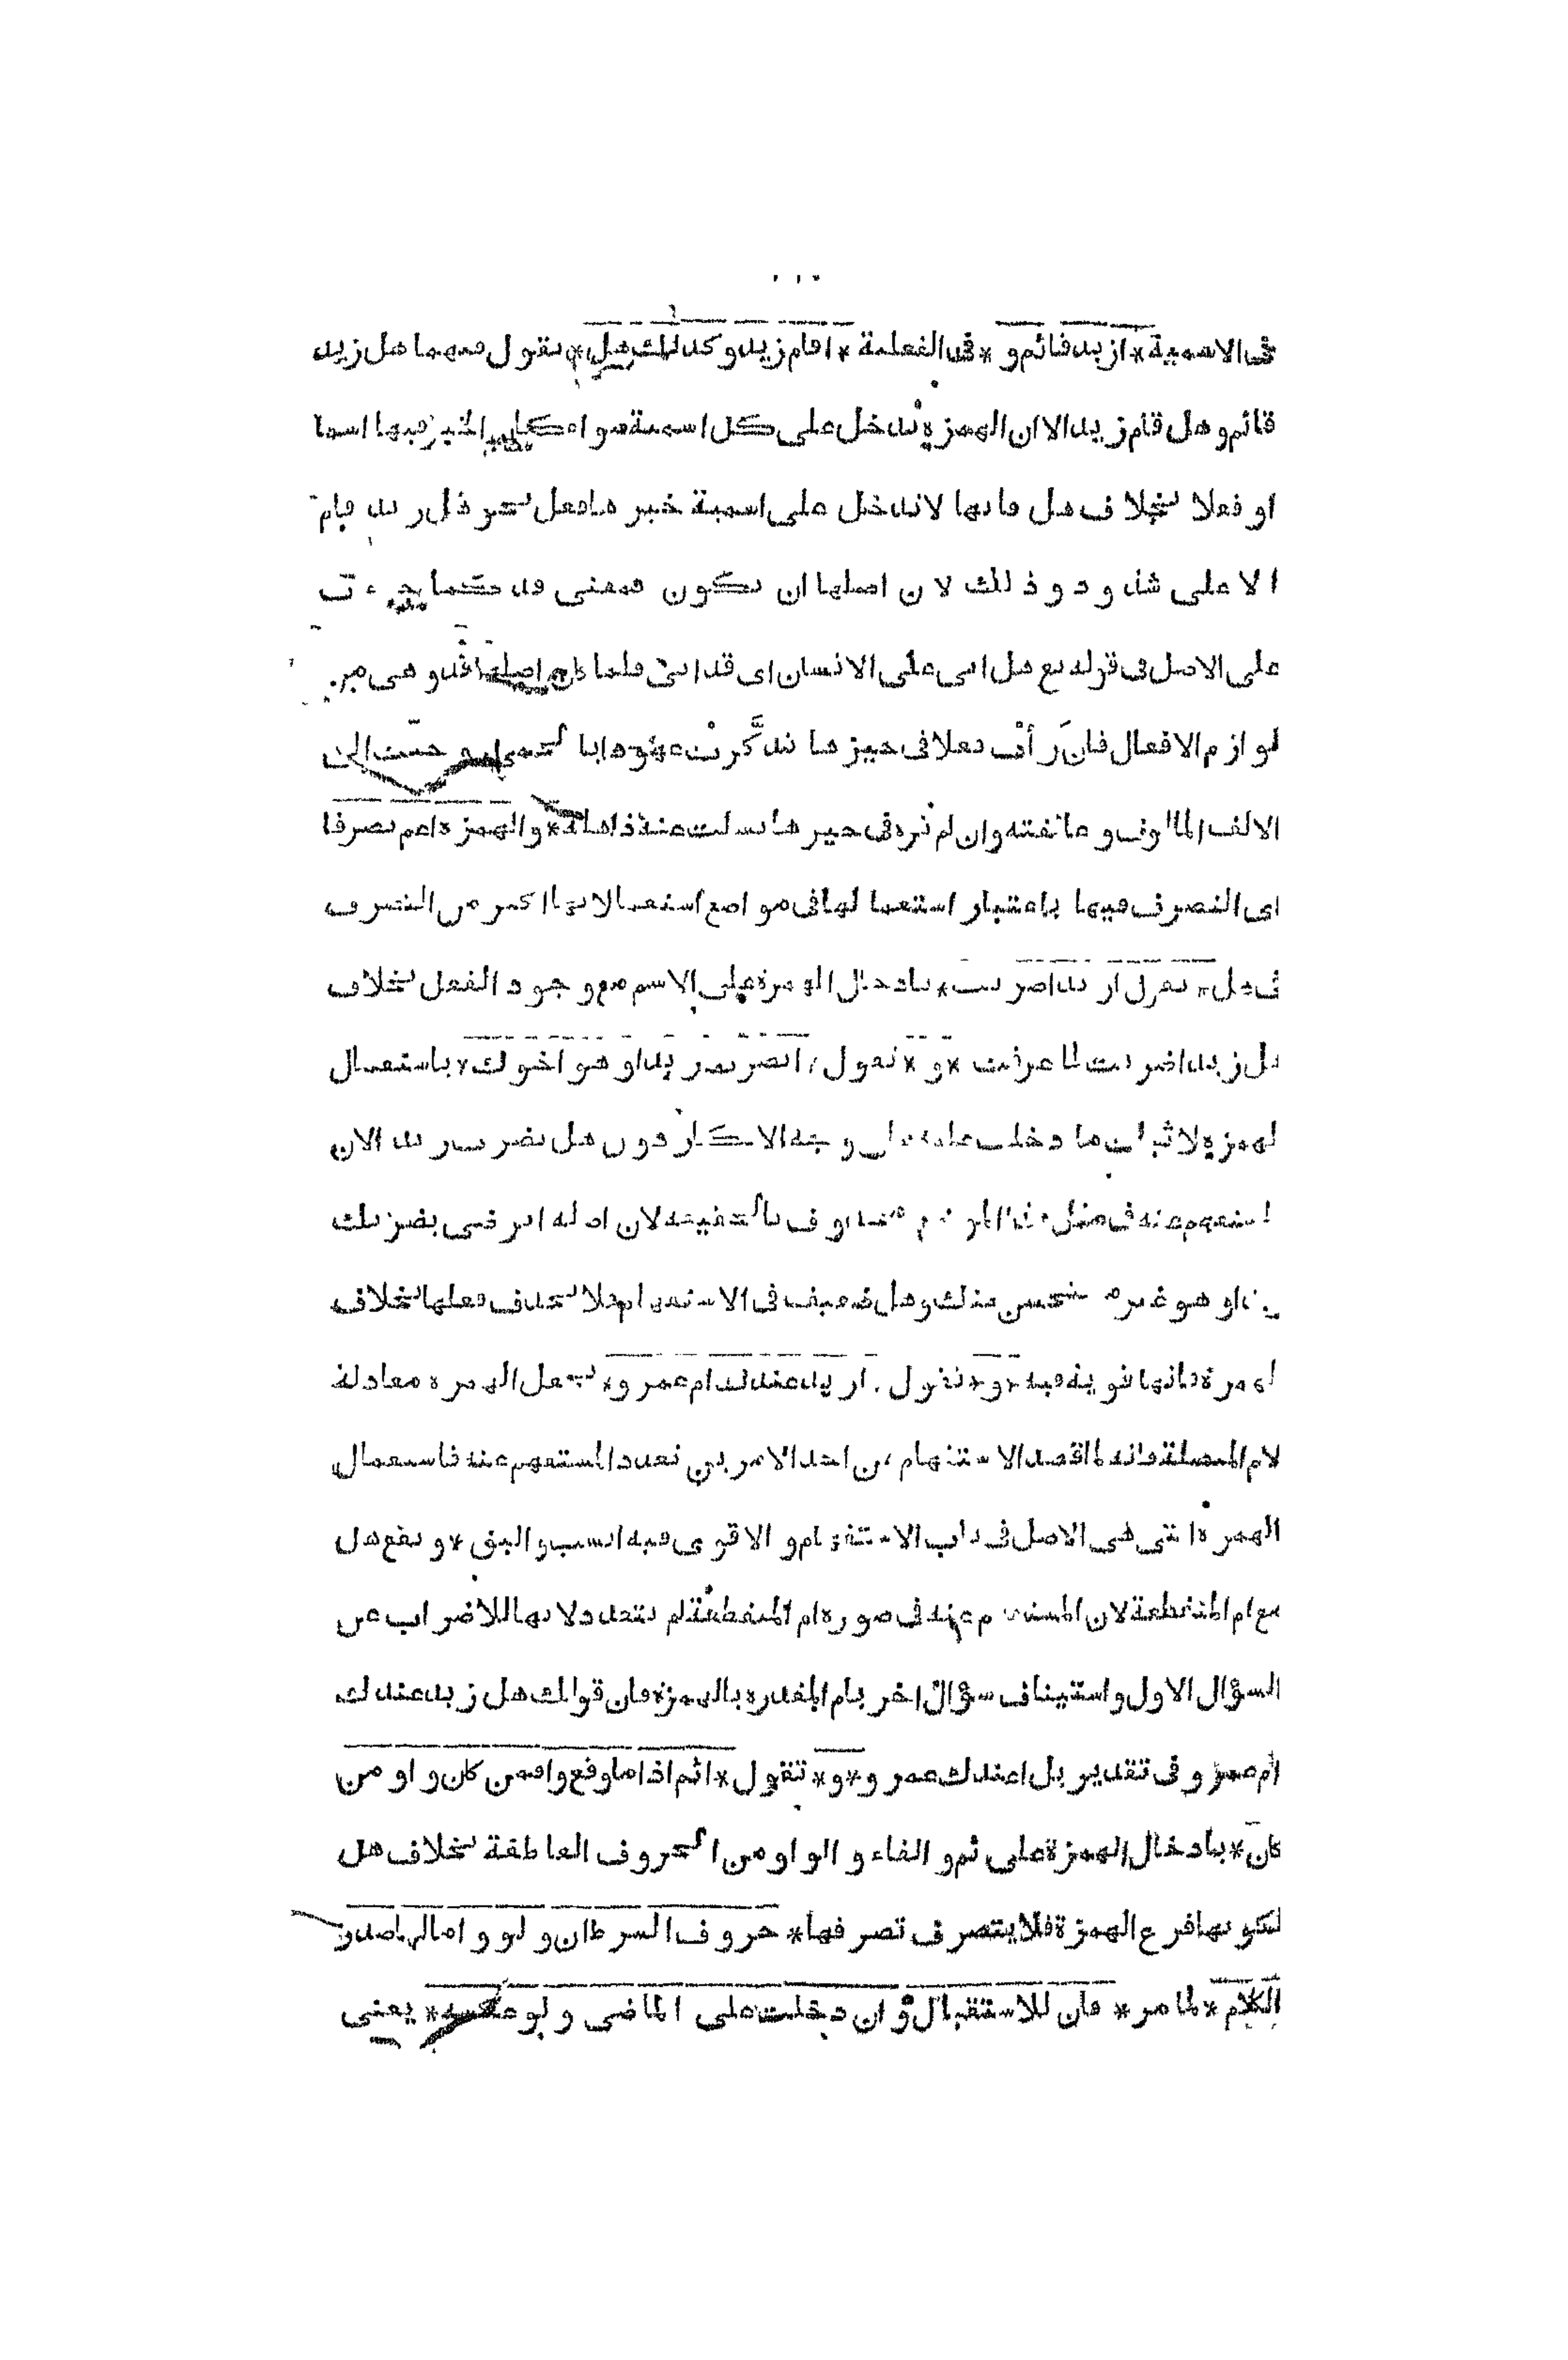 فى الاسمية * ازيد قائم و * فى الفعلية * اقام زيد وكذلك هل * تقول فيهما هل زيد
قائم وهل قام زيد الا ان الهمزة تدخل على كل اسمية سواء كان الخبر فيها اسما
او فعلا بخلاف هل فانها لا تدخل على اسمية خبرها فعل نحو هل زيد قام
الا على شذوذ وذلك لان اصلها ان تكون بمعنى قد كما جاءت
على الاصل فى قوله تع هل اتى على الانسان اى قد اتى فلما كان اصلها قد وهى من
لوازم الافعال فان رأت فعلا فى حيزها تذكرت عهودا بالحمى و حنت الى
الالف المالوف وعانقته وان لم تره فى حيزها تسلت عنه ذاهلة * والهمزة اعم تصرفا
اى التصرف فيها باعتبار استعمالها فى مواضع استعمالاتها اكثر من التصرف
فى هل * تقول ازيدا ضربت * بادخال الهمزة على الاسم مع وجود الفعل بخلاف
هل زيدا ضربت لما عرفت * و * تقول * اتضرب زيدا وهو اخوك * باستعمال
الهمزة لاثبات ما دخلت عليه على وجه الانكار دون هل تضرب زيدا لان
المستفهم عنه فى مثل هذا الموضع محذوف بالحقيقة لان اصله اترضى بضربك
زيدا وهو غير مستحسن منك وهل ضعيف فى الاستفهام فلا يحذف فعلها بخلاف
الهمزة فانها قوية فيه * و * تقول * ازيد عندك ام عمرو * بجعل الهمزة معادلة
لام المتصلة فانه لما قصد الاستفهام عن احد الامرين تعدد المستفهم عنه فاستعمال
الهمزة التى هى الاصل فى باب الاستفهام والاقوى فيه انسب واليق * ويقع هل
مع ام المنقطعة لان المستفهم عنه فى صورة ام المنقطعة لم يتعدد لانها للاضراب عن
السؤال الاول واستيناف سؤال اخر بام المقدرة بالهمزة فان قولك هل زيد عندك
ام عمرو فى تقدير بل اعندك عمرو * و * تقول * اثم اذا ما وقع وافمن كان و او من
كان * بادخال الهمزة على ثم و الفاء و الواو من الحروف العاطفة بخلاف هل
لكونها فرع الهمزة فلا يتصرف تصرفها * حروف الشرط ان ولو واما لها صدر
الكلام * لما مر * فان للاستقبال و ان دخلت على الماضى و لو عكسه * يعنى